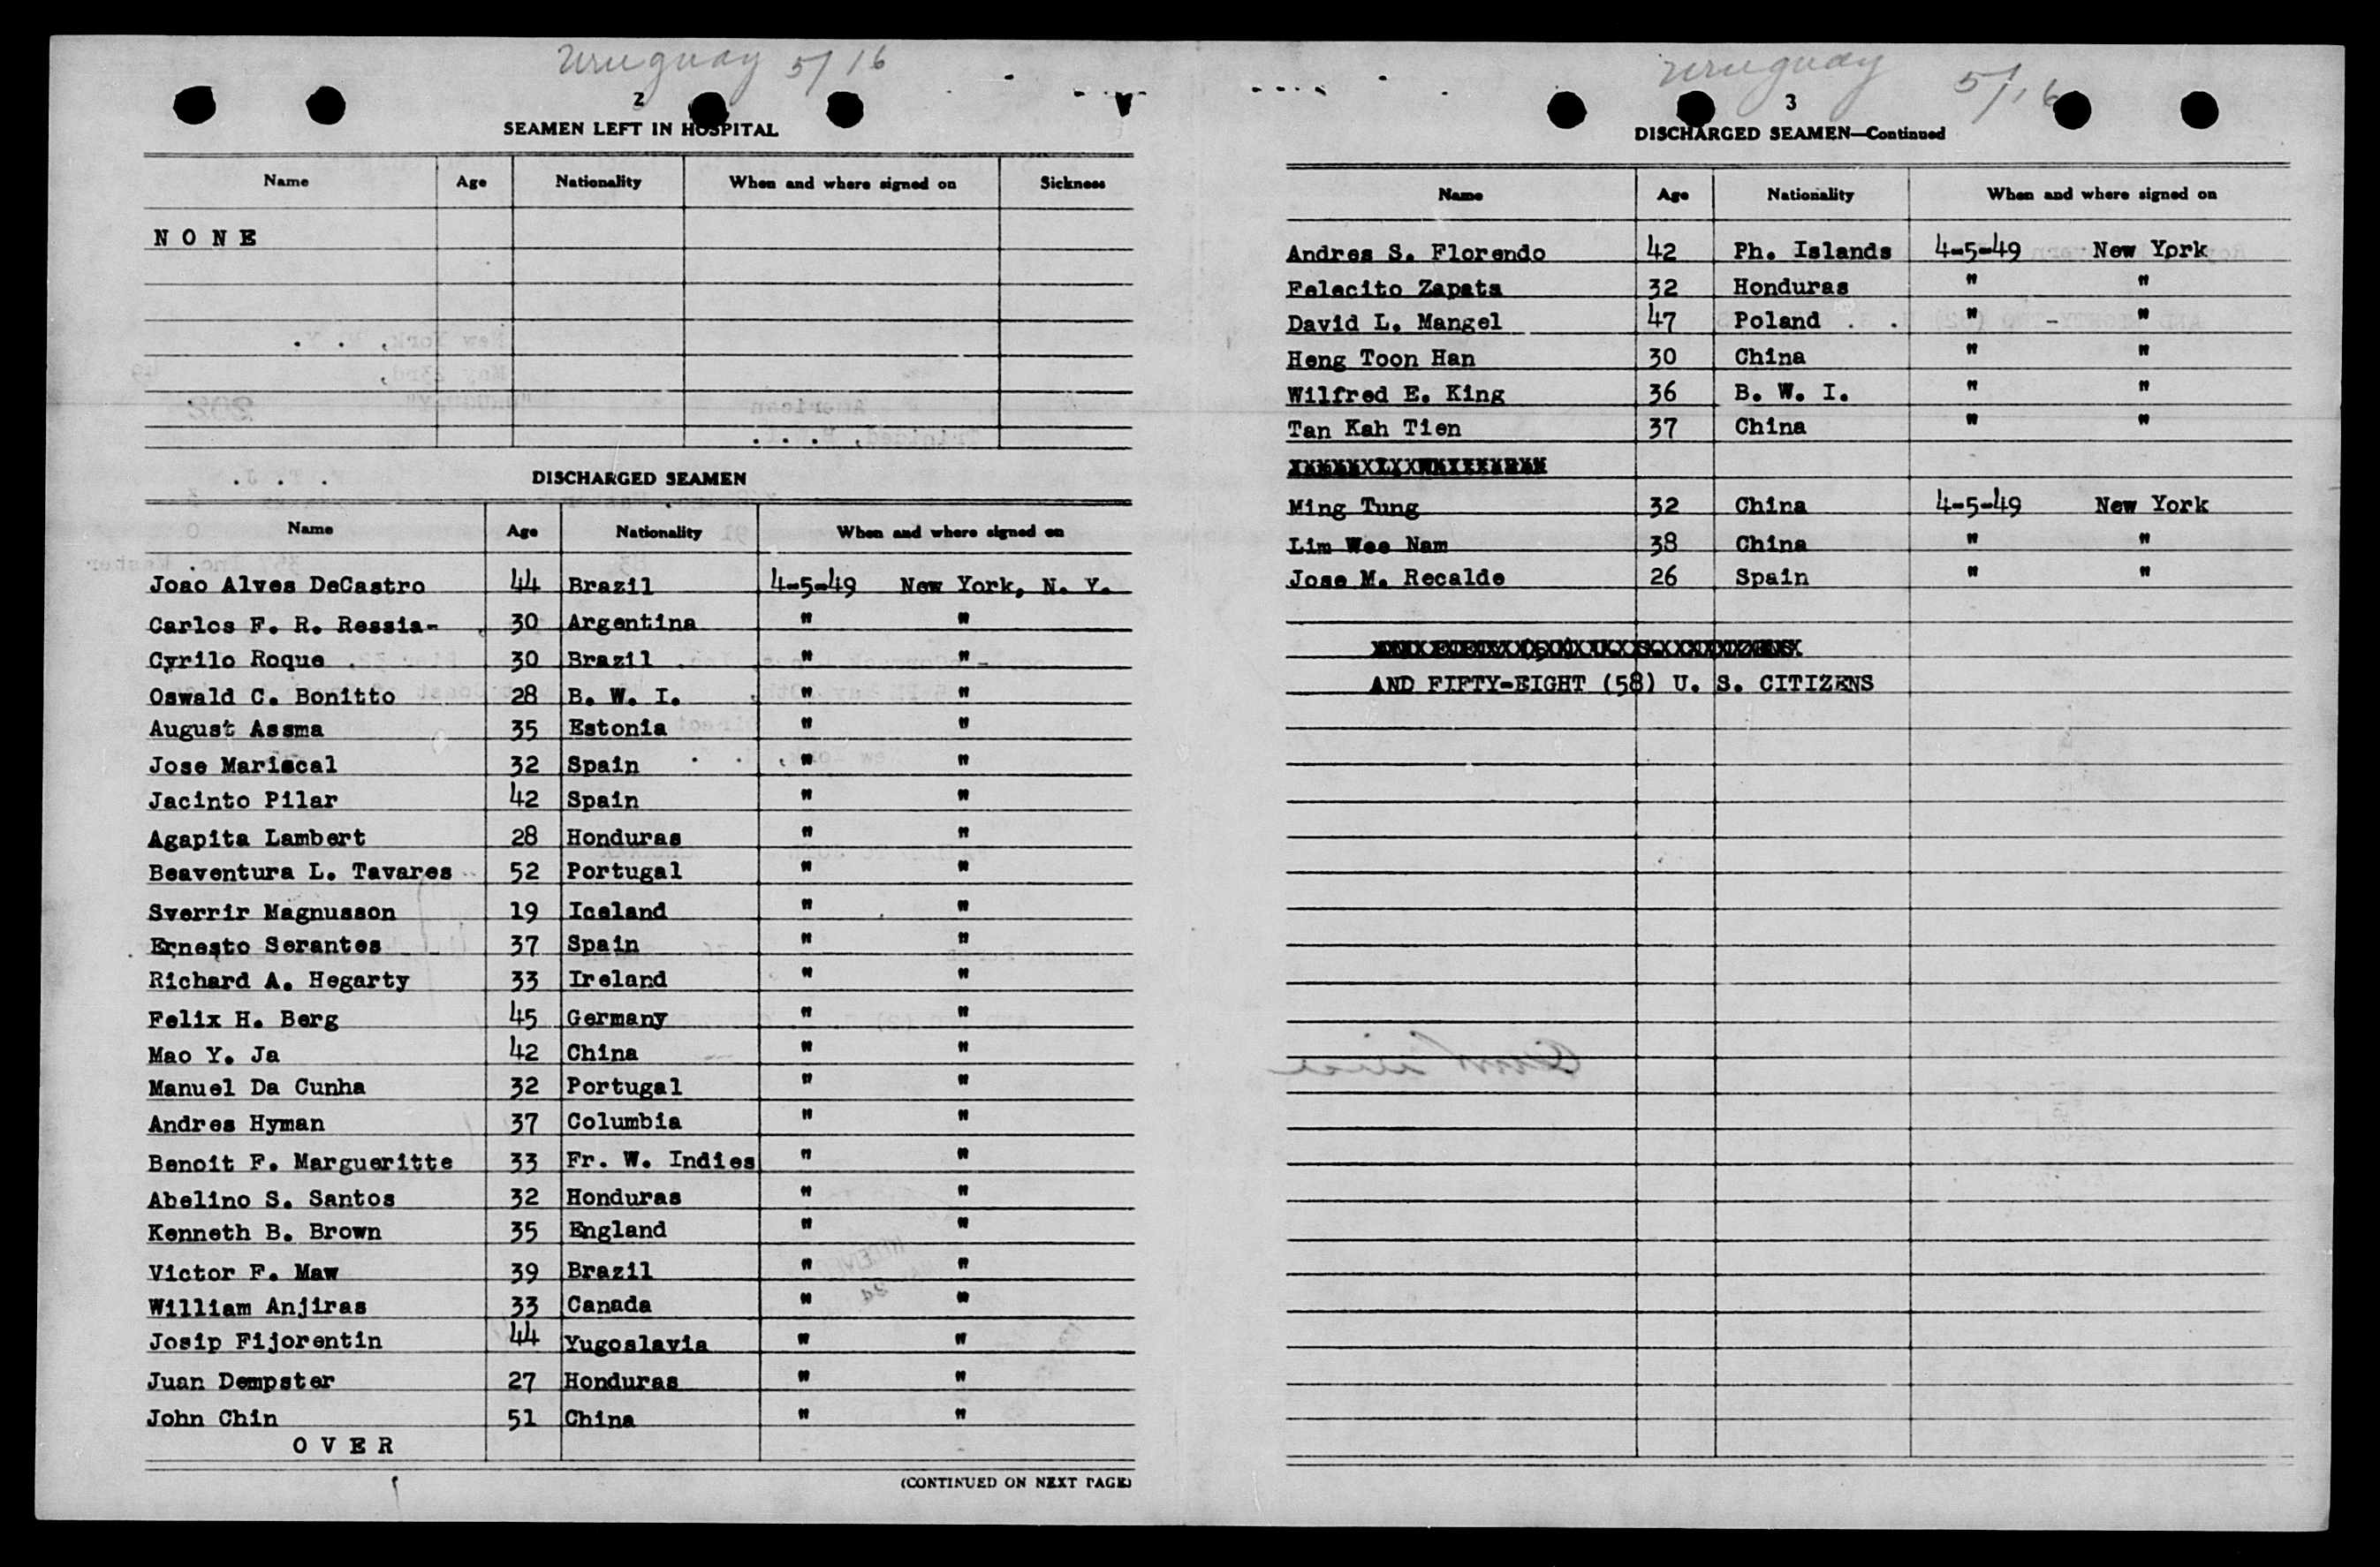 Uruguay 5/16
2
SEAMEN LEFT IN HOSPITAL
Name Age Nationality When and where signed on Sickness
N O N E
DISCHARGED SEAMEN
Name Age Nationality When and where signed on
Joao Alves DeCastro 44 Brazil 4-5-49 New York, N. Y.
Carlos F. R. Ressia- 30 Argentina " "
Cyrilo Roque 30 Brazil " "
Oswald C. Bonitto 28 B. W. I. " "
August Assma 35 Estonia " "
Jose Mariscal 32 Spain " "
Jacinto Pilar 42 Spain " "
Agapita Lambert 28 Honduras " "
Beaventura L. Tavares 52 Portugal " "
Sverrir Magnusson 19 Iceland " "
Ernesto Serantes 37 Spain " "
Richard A. Hegarty 33 Ireland " "
Felix H. Berg 45 Germany " "
Mao Y. Ja 42 China " "
Manuel Da Cunha 32 Portugal " "
Andres Hyman 37 Columbia " "
Benoit F. Margueritte 33 Fr. W. Indies " "
Abelino S. Santos 32 Honduras " "
Kenneth B. Brown 35 England " "
Victor F. Maw 39 Brazil " "
William Anjiras 33 Canada " "
Josip Fijorentin 44 Yugoslavia " "
Juan Dempster 27 Honduras " "
John Chin 51 China " "
O V E R
(CONTINUED ON NEXT PAGE)
Uruguay 5/16
3
DISCHARGED SEAMEN—Continued
Name Age Nationality When and where signed on
Andres S. Florendo 42 Ph. Islands 4-5-49 New York
Felecito Zapata 32 Honduras " "
David L. Mangel 47 Poland " "
Heng Toon Han 30 China " "
Wilfred E. King 36 B. W. I. " "
Tan Kah Tien 37 China " "
Ming Tung 32 China 4-5-49 New York
Lim Wee Nam 38 China " "
Jose M. Recalde 26 Spain " "
AND FIFTY-EIGHT (58) U. S. CITIZENS